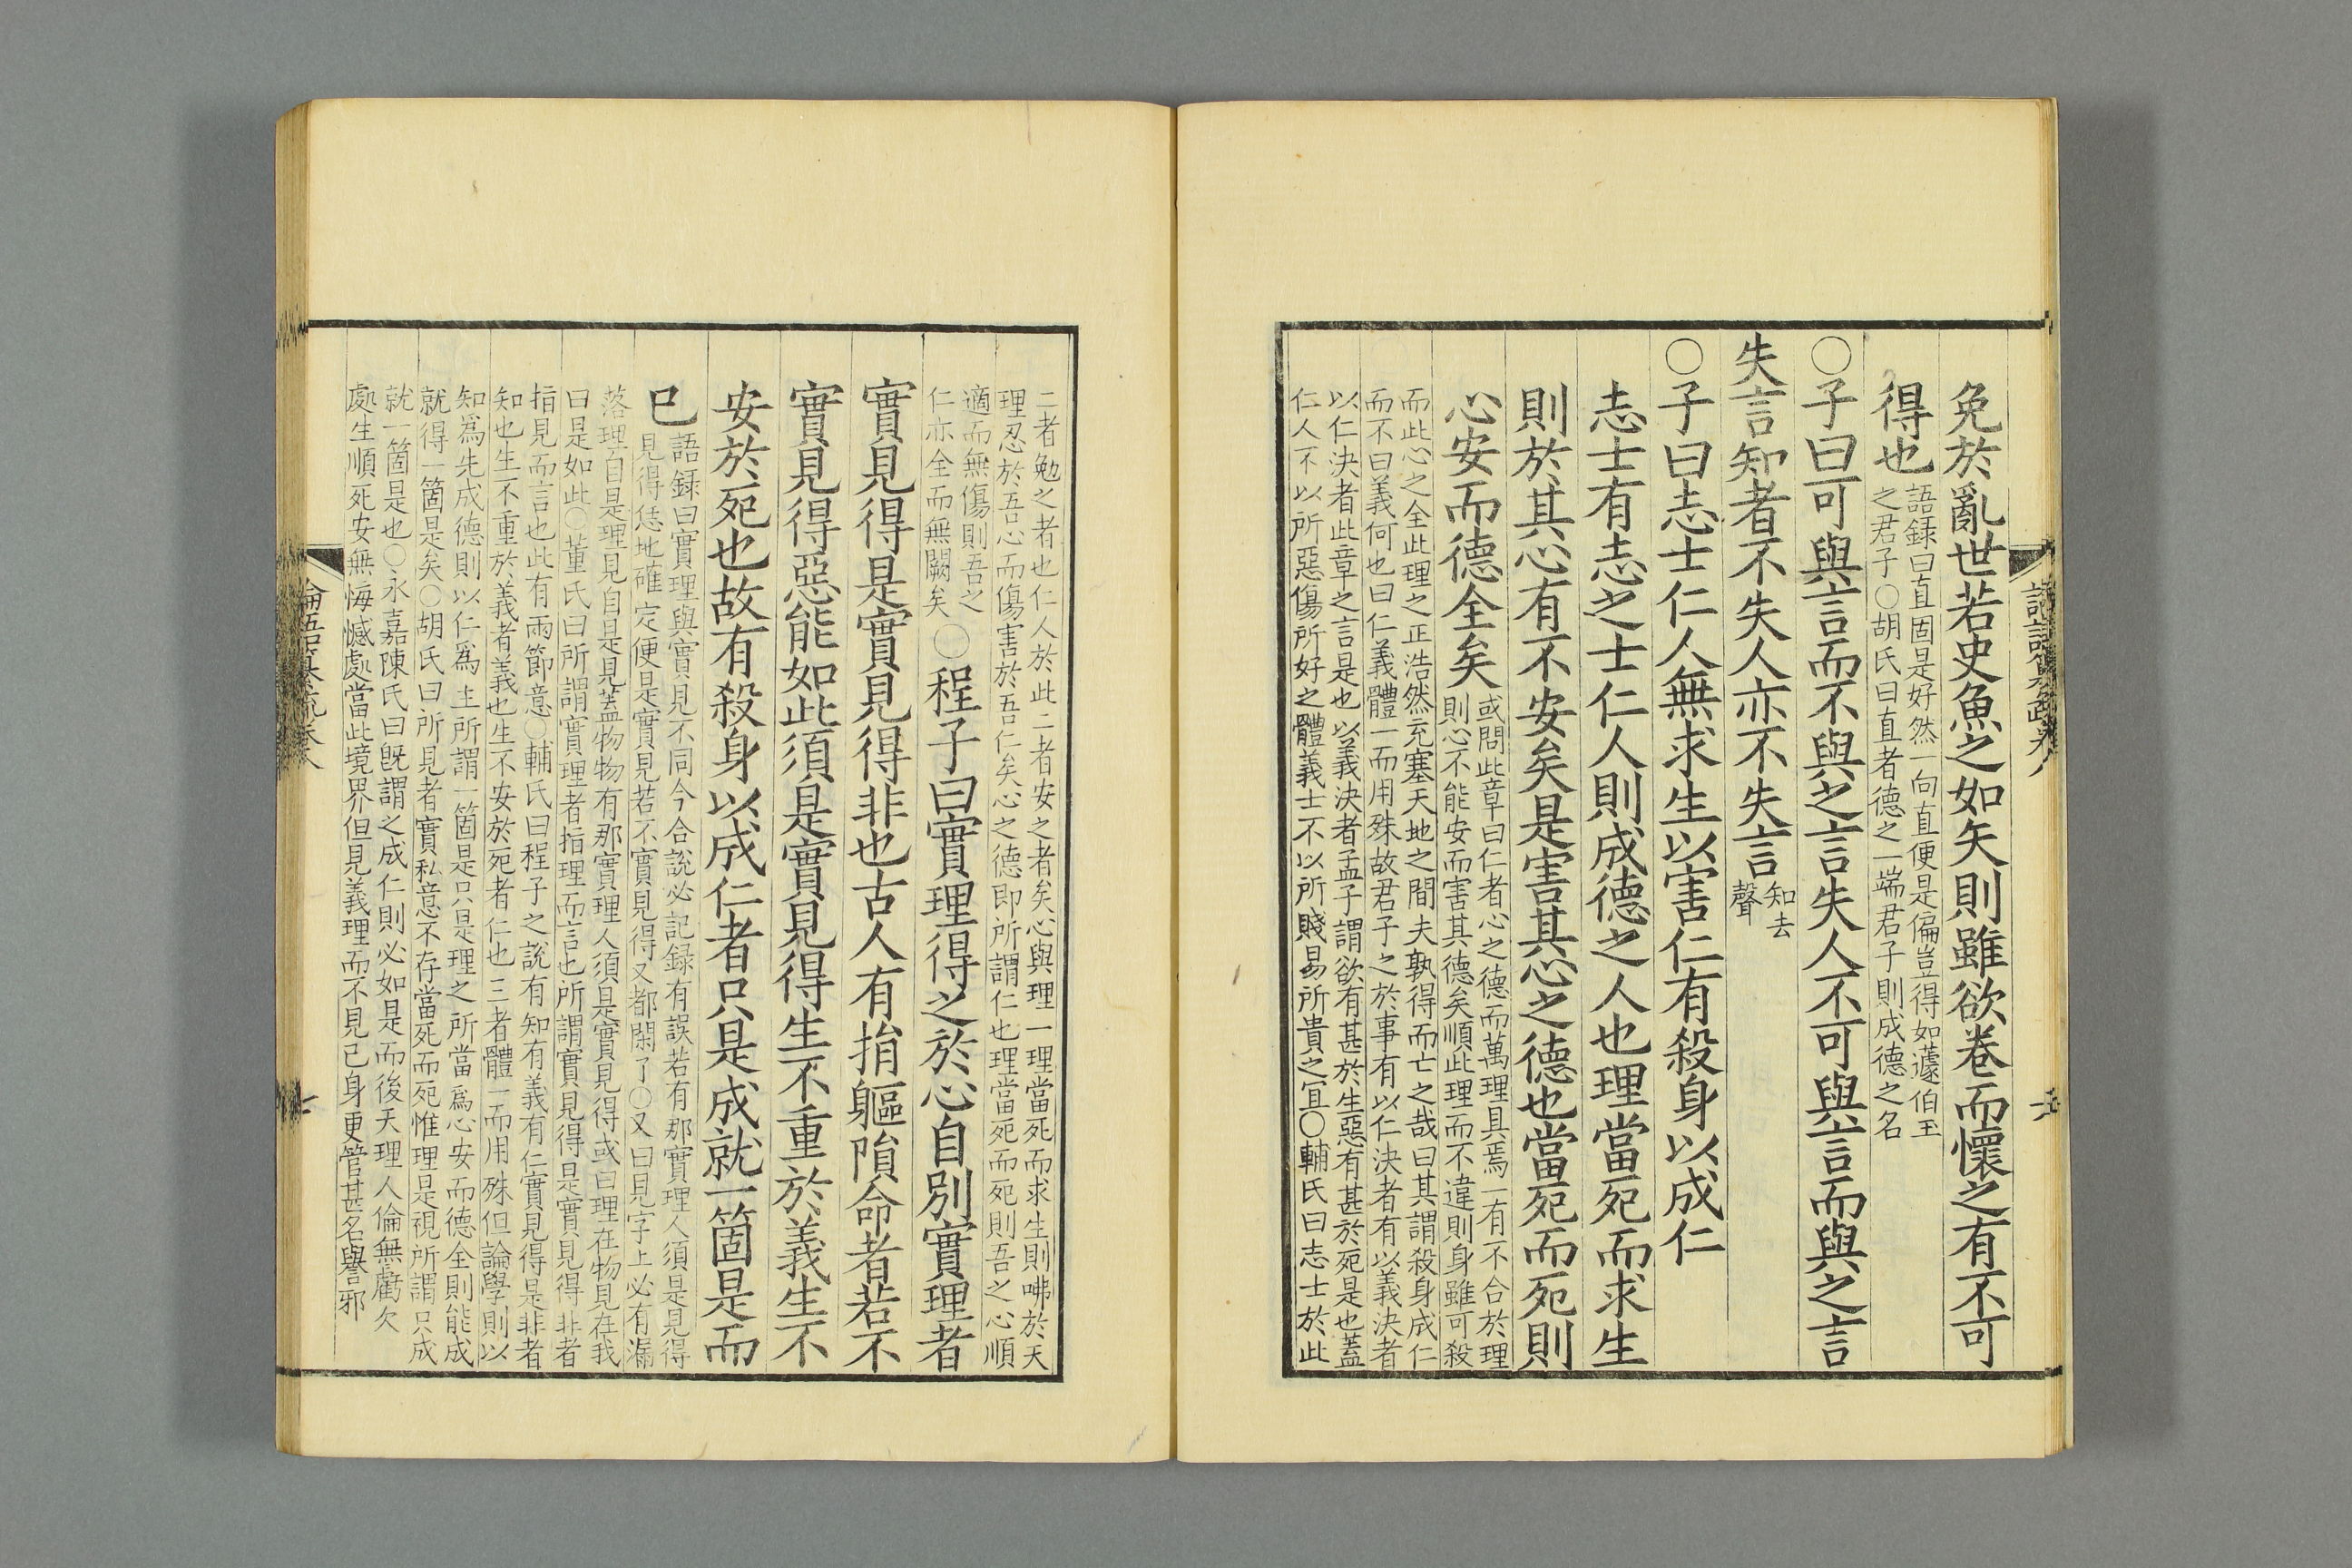 免於亂世若史魚之如矢則雖欲卷而懷之有不可
得也
語錄曰直固是好然一向直便是偏豈得如蘧伯玉
之君子○胡氏曰直者德之一端君子則成德之名
○子曰可與言而不與之言失人不可與言而與之言
失言知者不失人亦不失言
知去
聲
○子曰志士仁人無求生以害仁有殺身以成仁
志士有志之士仁人則成德之人也理當死而求生
則於其心有不安矣是害其心之德也當死而死則
心安而德全矣
或問此章曰仁者心之德而萬理具焉一有不合於理
則心不能安而害其德矣順此理而不違則身雖可殺
而此心之全此理之正浩然充塞天地之間夫孰得而亡之哉曰其謂殺身成仁
而不曰義何也曰仁義體一而用殊故君子之於事有以仁決者有以義決者
以仁決者此章之言是也以義決者孟子謂欲有甚於生惡有甚於死是也蓋
仁人不以所惡傷所好之體義士不以所賤易所貴之宜○輔氏曰志士於此
二者勉之者也仁人於此二者安之者矣心與理一理當死而求生則咈於天
理忍於吾心而傷害於吾仁矣心之德即所謂仁也理當死而死則吾之心順
適而無傷則吾之
仁亦全而無闕矣
○程子曰實理得之於心自別實理者
實見得是實見得非也古人有捐軀隕命者若不
實見得惡能如此須是實見得生不重於義生不
安於死也故有殺身以成仁者只是成就一箇是而
已
語錄曰實理與實見不同今合說必記錄有誤若有那實理人須是見得
見得恁地確定便是實見若不實見得又都閑了○又曰見字上必有漏
落理自是理見自是見蓋物物有那實理人須是實見得或曰理在物見在我
曰是如此○董氏曰所謂實理者指理而言也所謂實見得是實見得非者
指見而言也此有兩節意○輔氏曰程子之說有知有義有仁實見得是非者
知也生不重於義者義也生不安於死者仁也三者體一而用殊但論學則以
知爲先成德則以仁爲主所謂一箇是只是理之所當爲心安而德全則能成
就得一箇是矣○胡氏曰所見者實私意不存當死而死惟理是視所謂只成
就一箇是也○永嘉陳氏曰旣謂之成仁則必如是而後天理人倫無虧欠
處生順死安無悔憾處當此境界但見義理而不見己身更管甚名譽邪